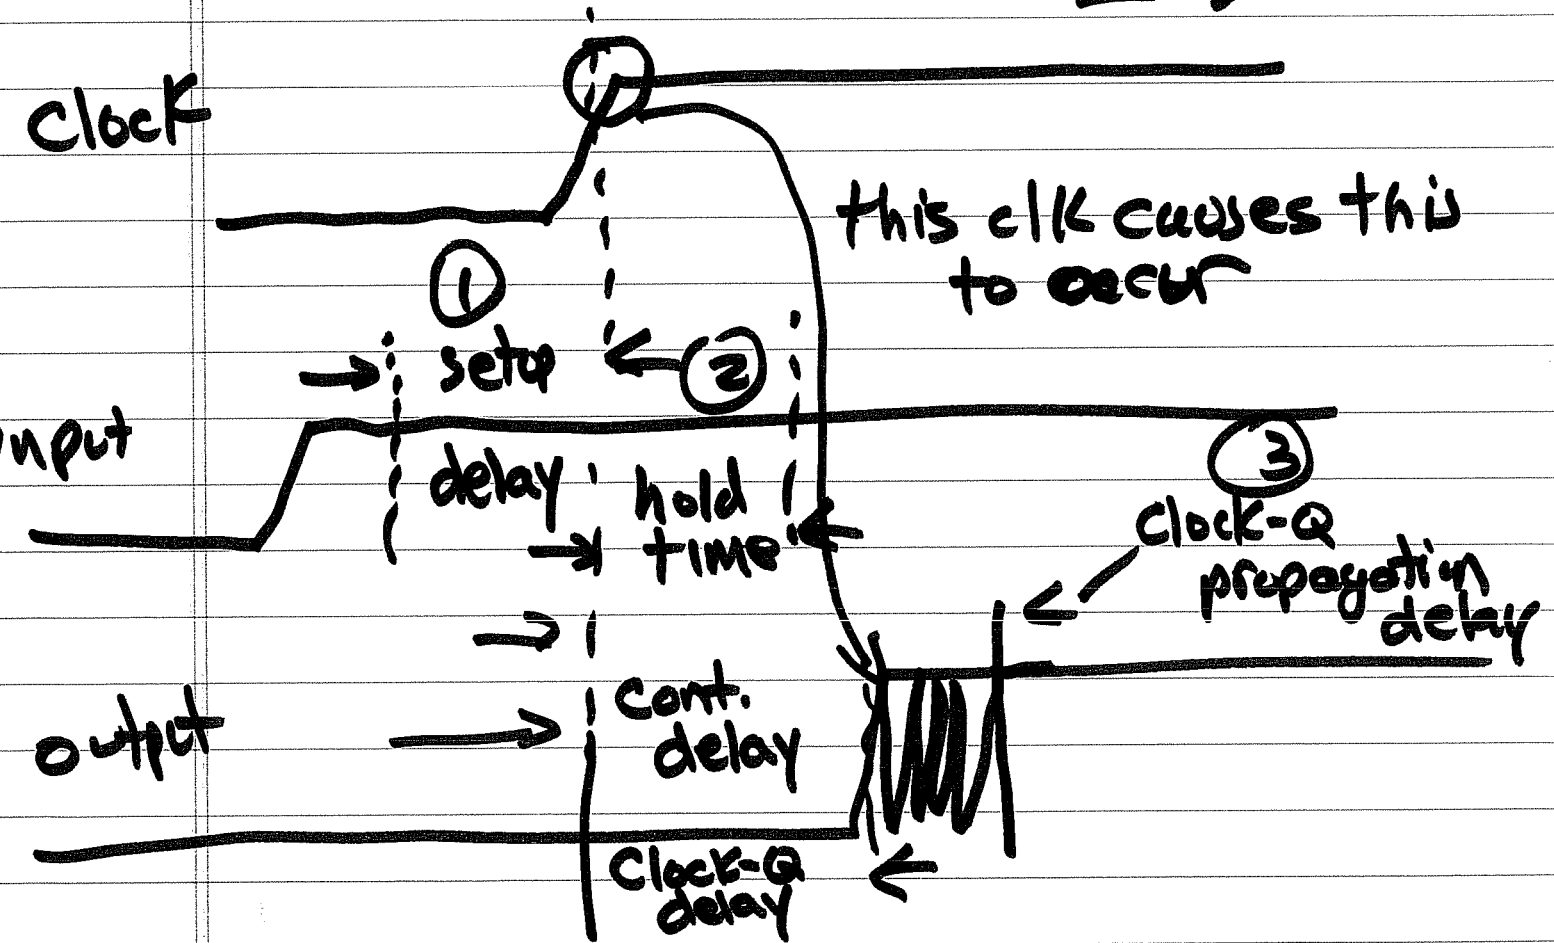 Clock
this clk causes this
to occur
1
setup
2
nput
delay
hold
time
3
Clock-Q
propagation
delay
output
cont.
delay
Clock-Q
delay